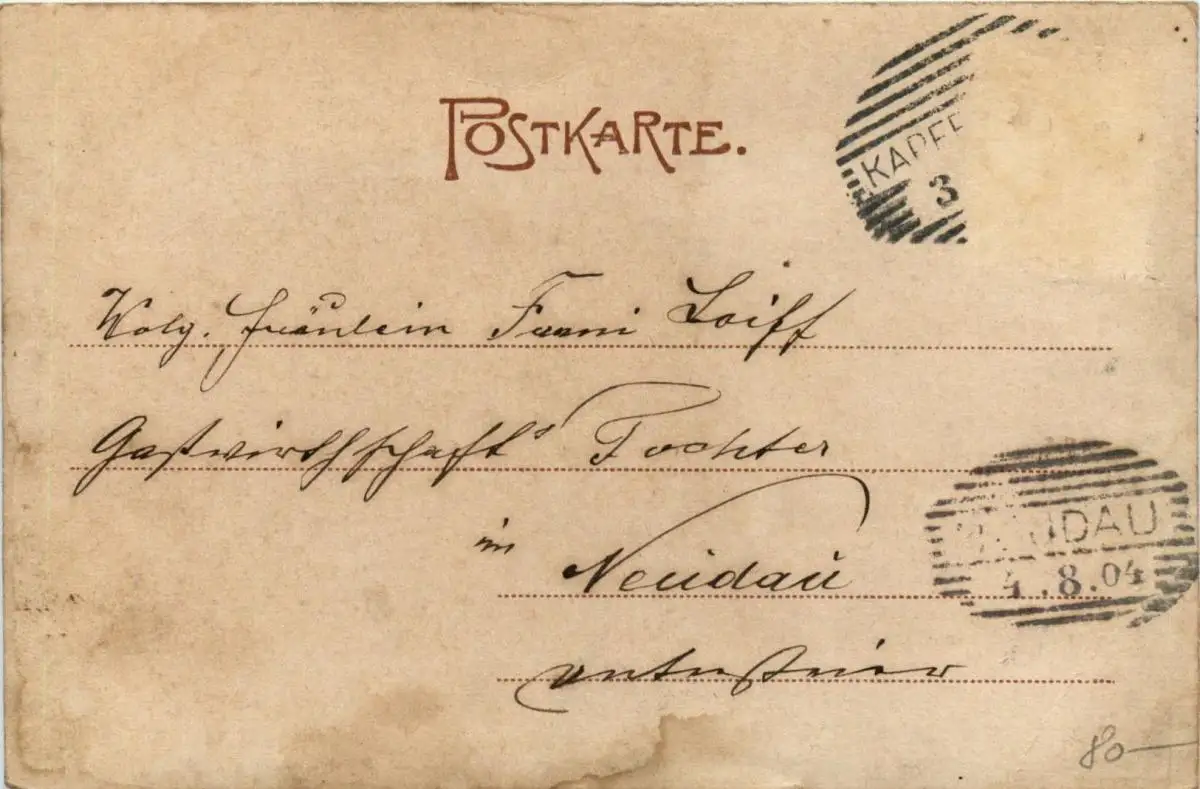 POSTKARTE.
KAPF
3
Wolg. Fräulein Fanni Loiff
Gastwirthschafts Tochter
in Neudau
Untersteier
NEUDAU
4.8.04
80—